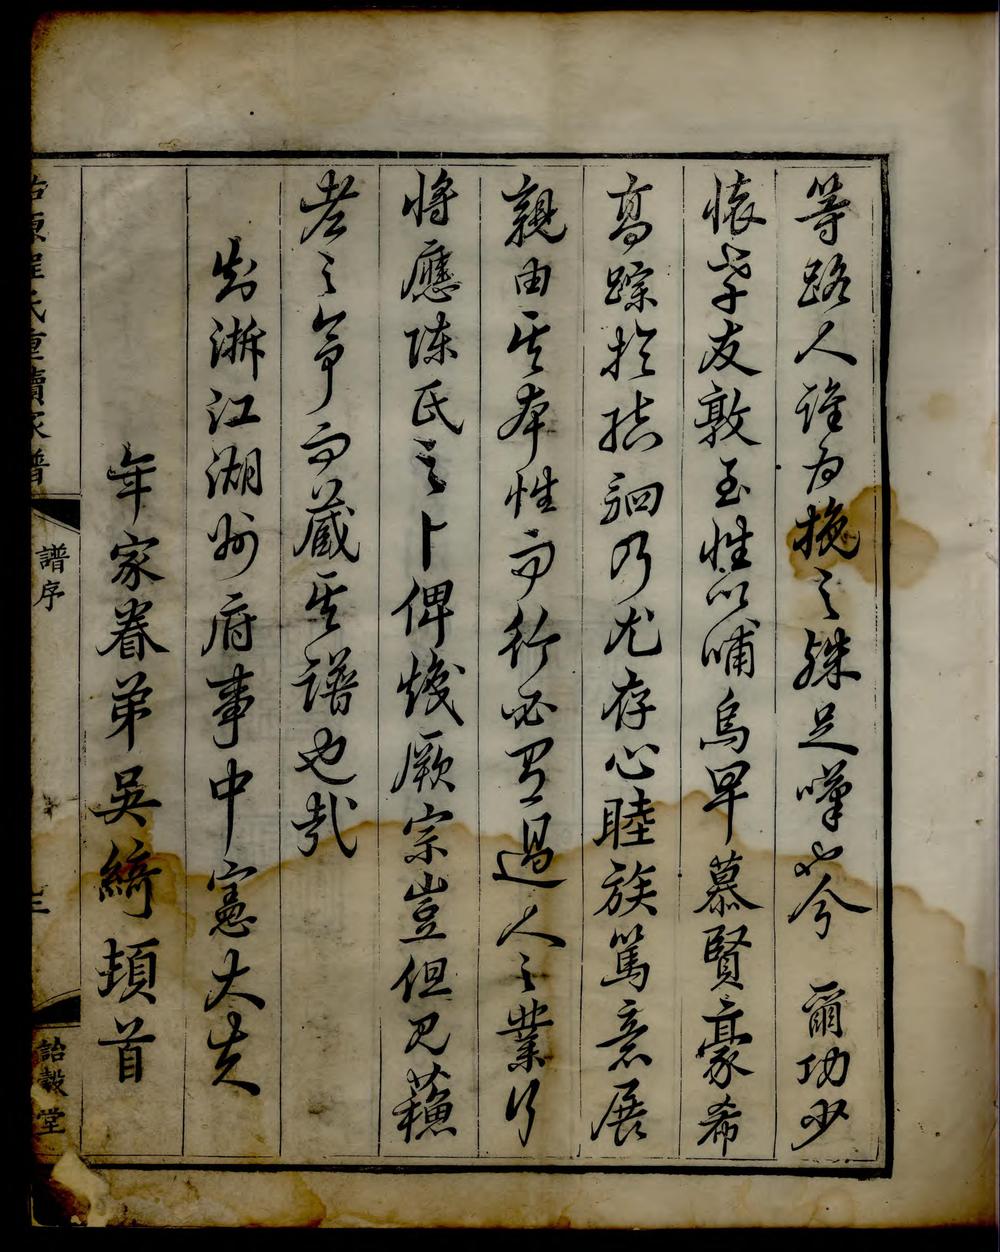 等路人誰為挽之殊足嘆也今 爾功少
懷孝友敦至性以哺烏早慕賢豪希
高踪於結駟乃尤存心睦族篤意展
親由其本性而行必有過人之業行
將應陳氏之卜俾熾厥宗豈但見蘓
老之亭而藏其譜也哉
知浙江湖州府事中憲大夫
年家眷弟吳綺頓首
程氏重續家譜
譜序
詒穀堂